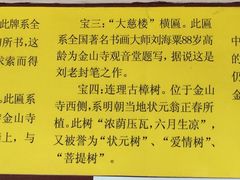 此牌系全
所书，这
求索而得
。此匾系
于金山寺
海上，与
宝三：“大慈楼”横匾。此匾
系全国著名书画大师刘海粟88岁高
龄为金山寺观音堂题写，据说这是
刘老封笔之作。
宝四：连理古樟树。位于金山
寺西侧，系明朝当地状元翁正春所
植。此树“浓荫压瓦，六月生凉”，
又被誉为“状元树”、“爱情树”、
“菩提树”。
中
方
金
仍